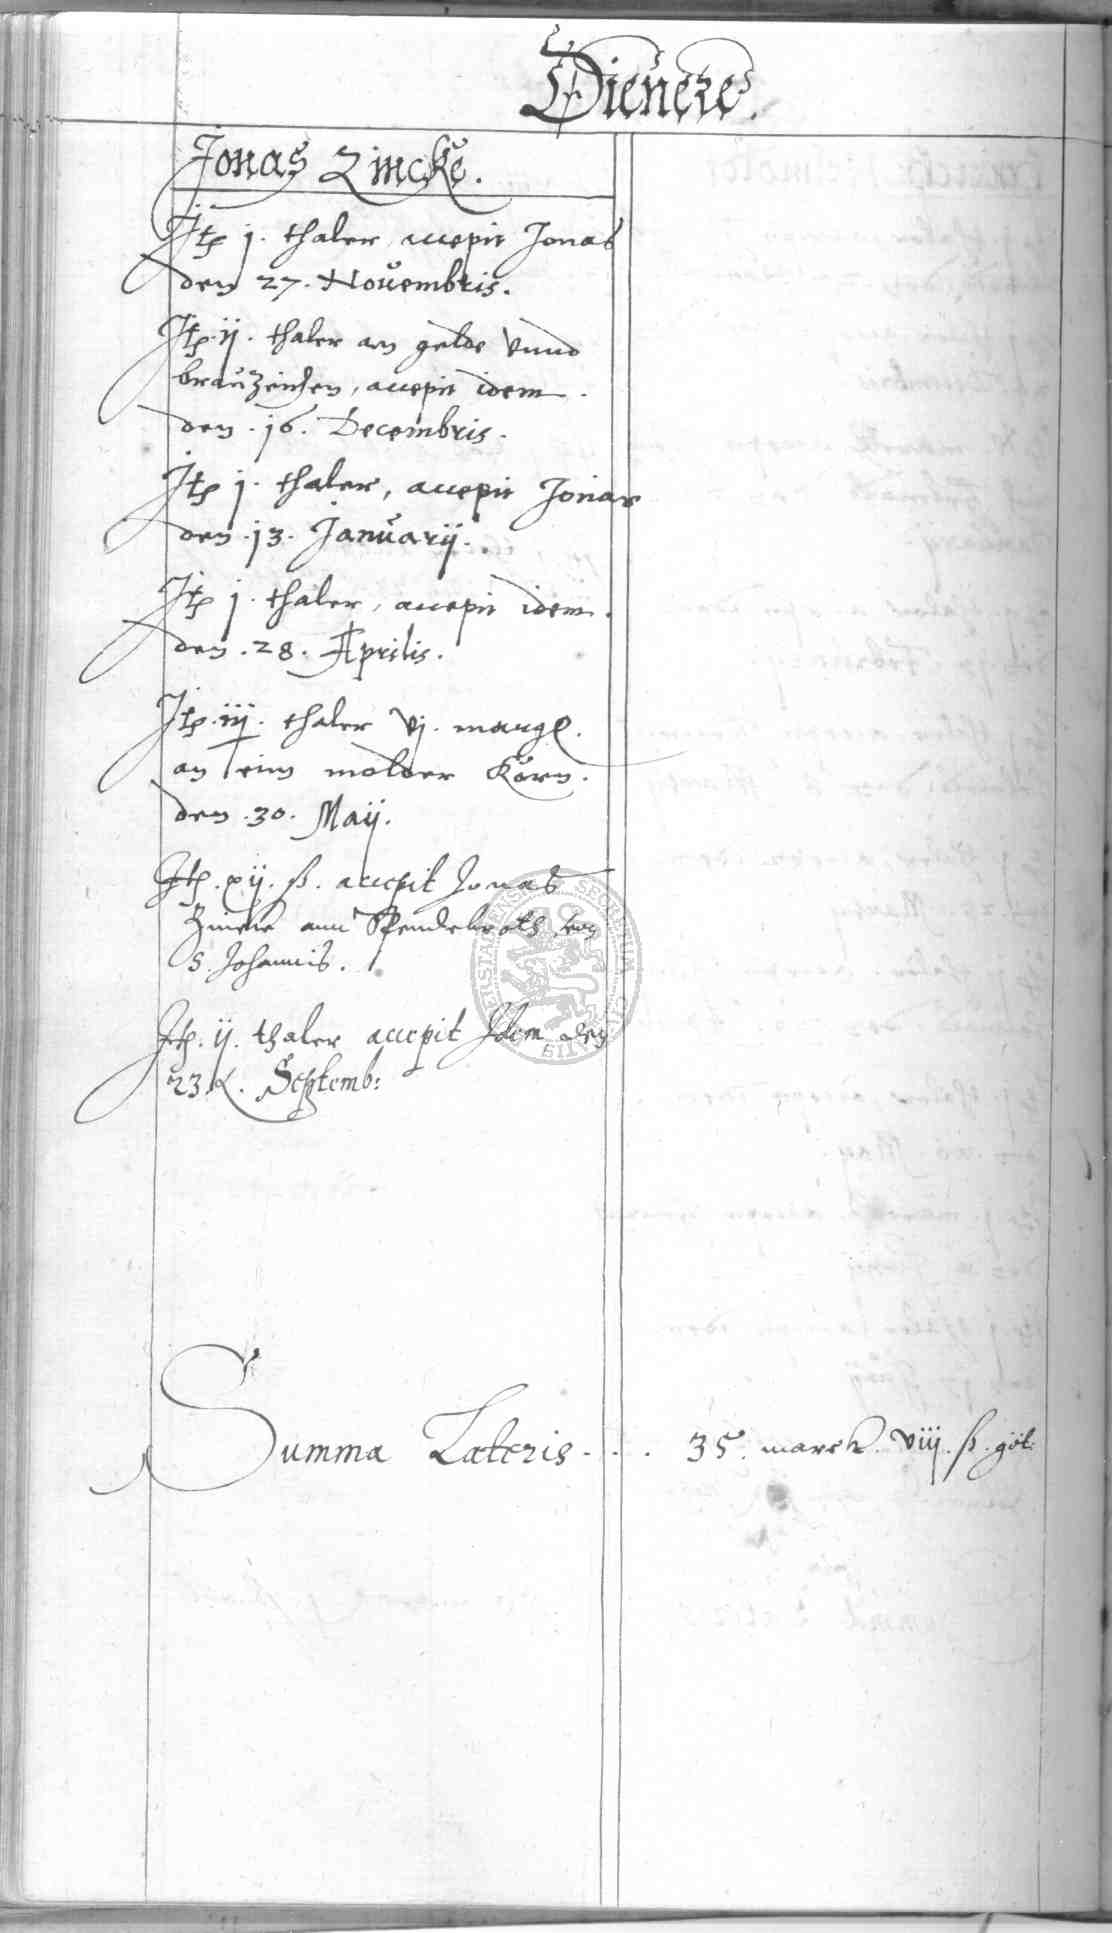 Dienere.
Jonas Zincke.
Jtp j. thaler, accepit Jonas
den 27. Novembris.
Jtp. ij. thaler an gelde vnnd
brauzeichen, accepit idem.
den .16. Decembris.
Jtp j. thaler, accepit Jonas
den .13. Januarij.
Jtp j. thaler, accepit idem.
den .28. Aprilis.
Jtp. iij. thaler vj. margl.
an einn molder Korn.
den .30. Maij.
Jtp. xij. ß. accepit Jonas
Zincke ann Spendebroth
S. Johannis.
Jtp. ij. thaler accepit Idem den
23. Septemb:
Summa Lateris . . . 35. marck. viij. ß. gōt:
SECRETUM